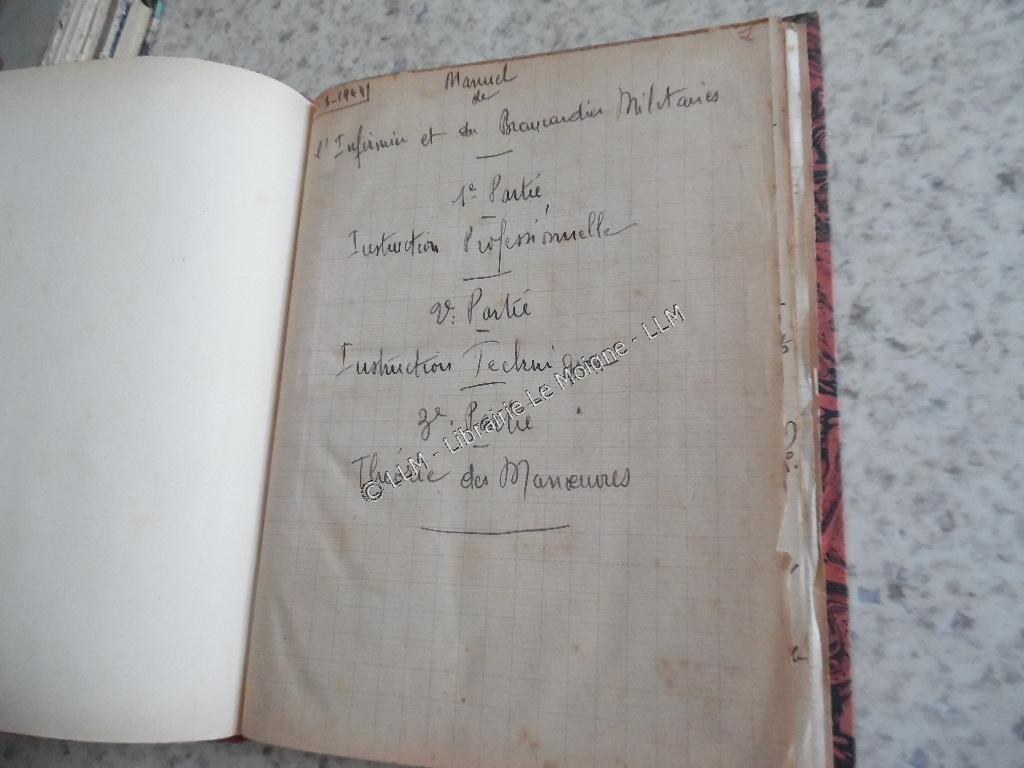 Manuel
de
l'Infirmier et du Brancardier Militaires
1e Partie
Instruction Professionnelle
2e. Partie
Instruction Technique
3e. Partie
Théorie des Manœuvres
© LLM - Librairie Le Moigne - LLM